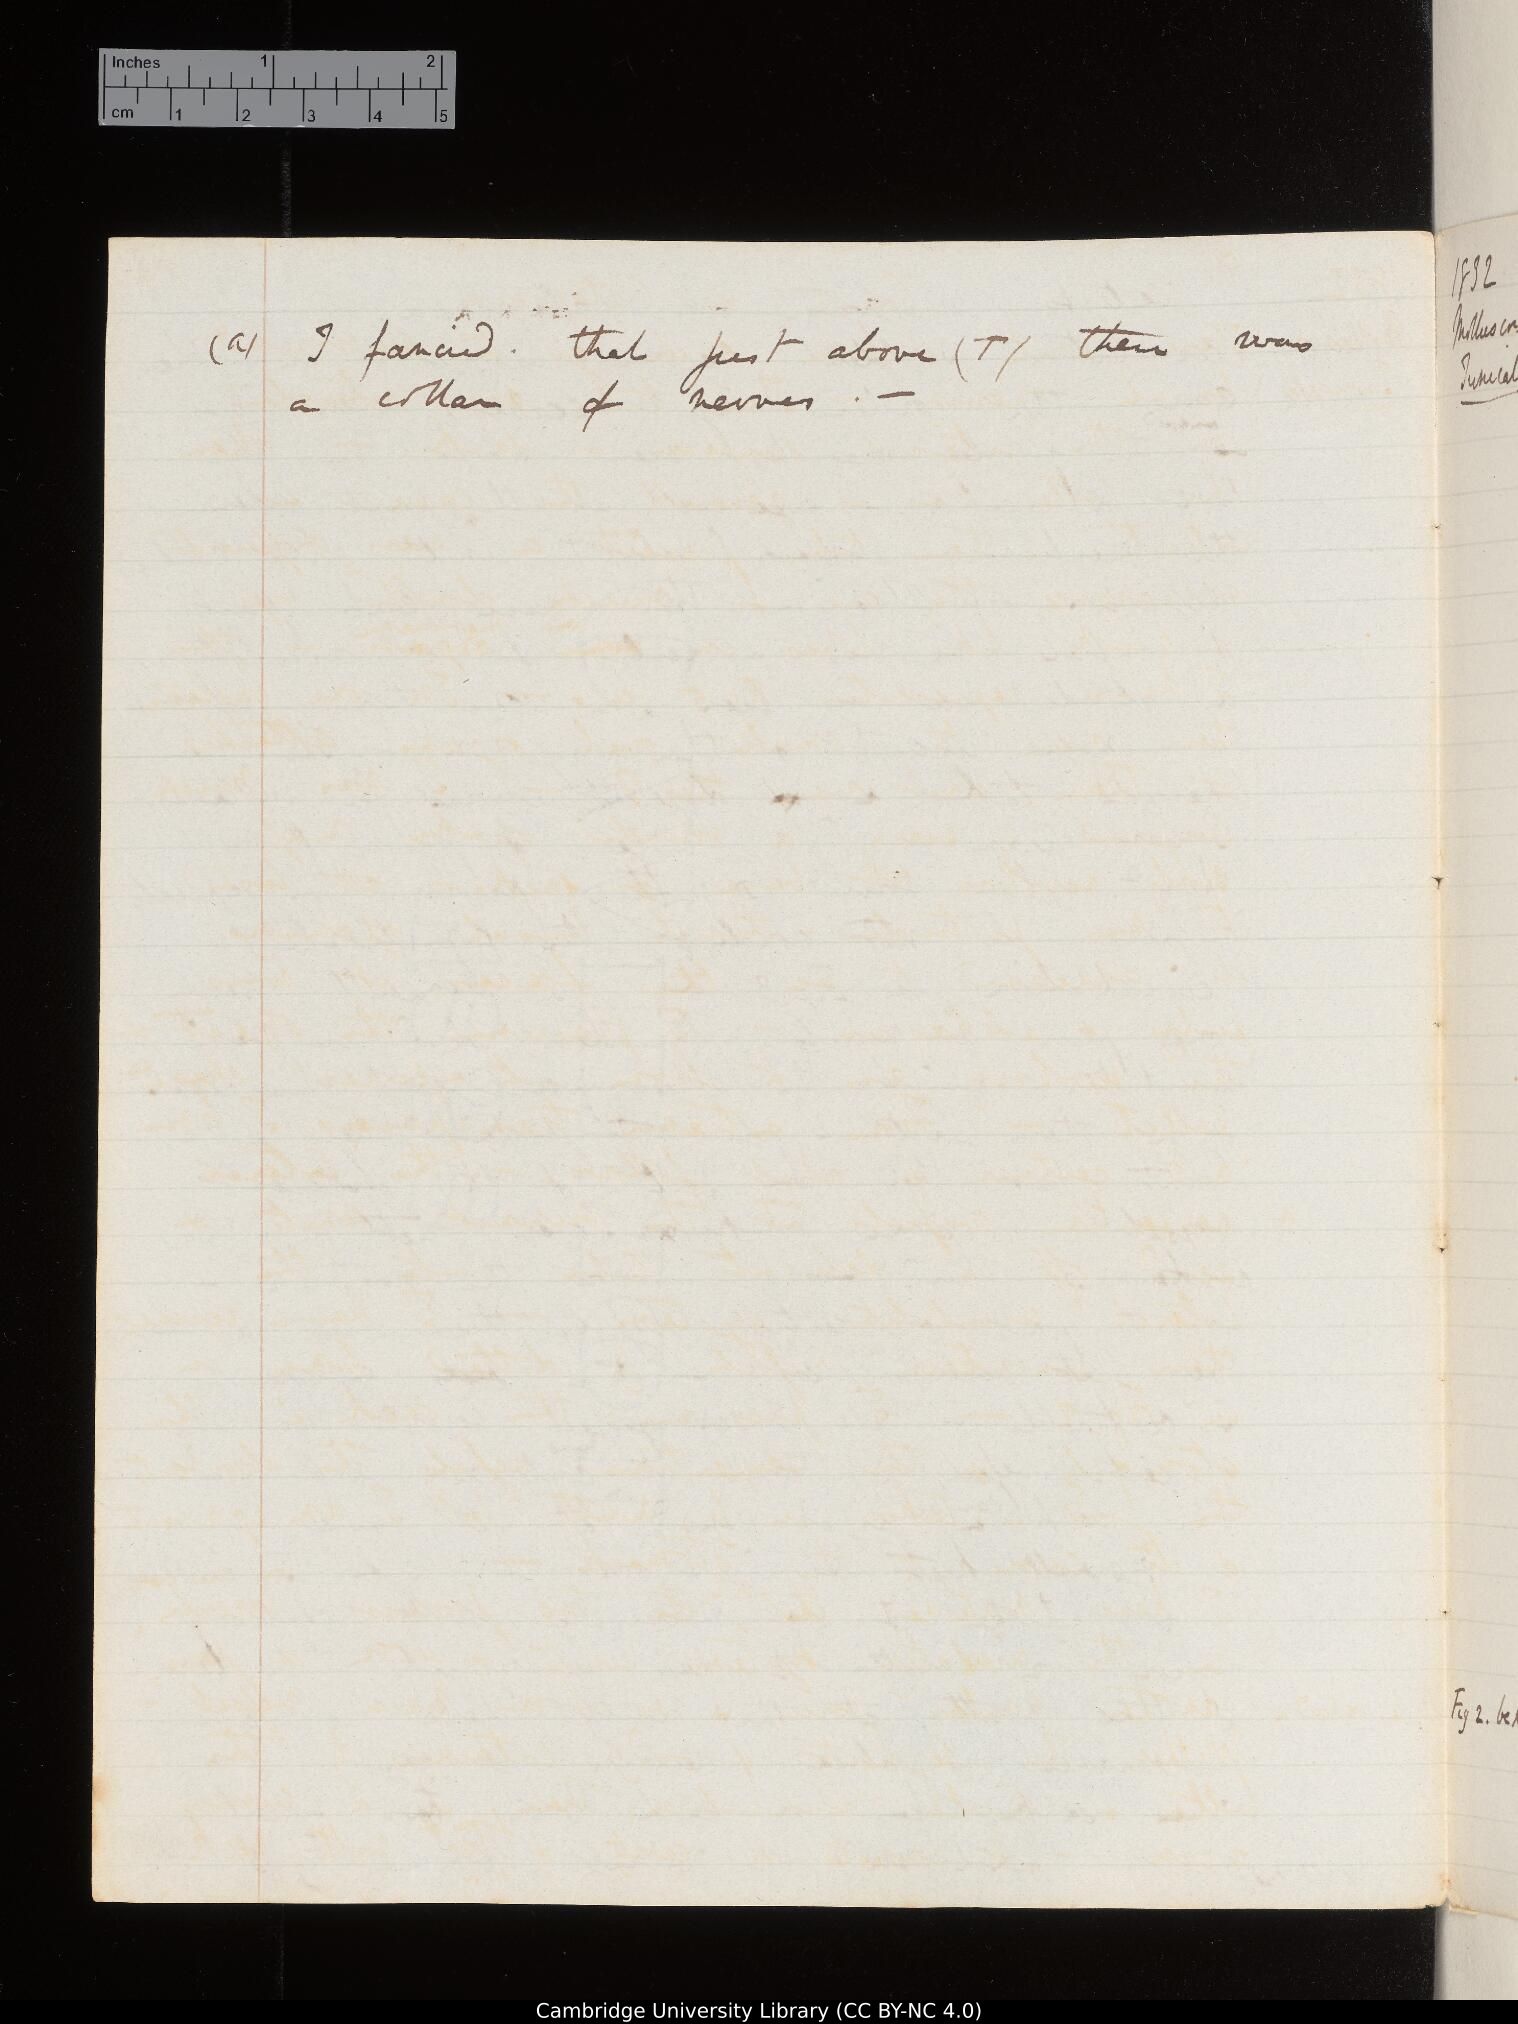 Inches 1 2
cm 1 2 3 4 5
(a) I fancied. that just above (T) there was
a collar of nerves. —
1832
Fig 2. be
Cambridge University Library (CC BY-NC 4.0)